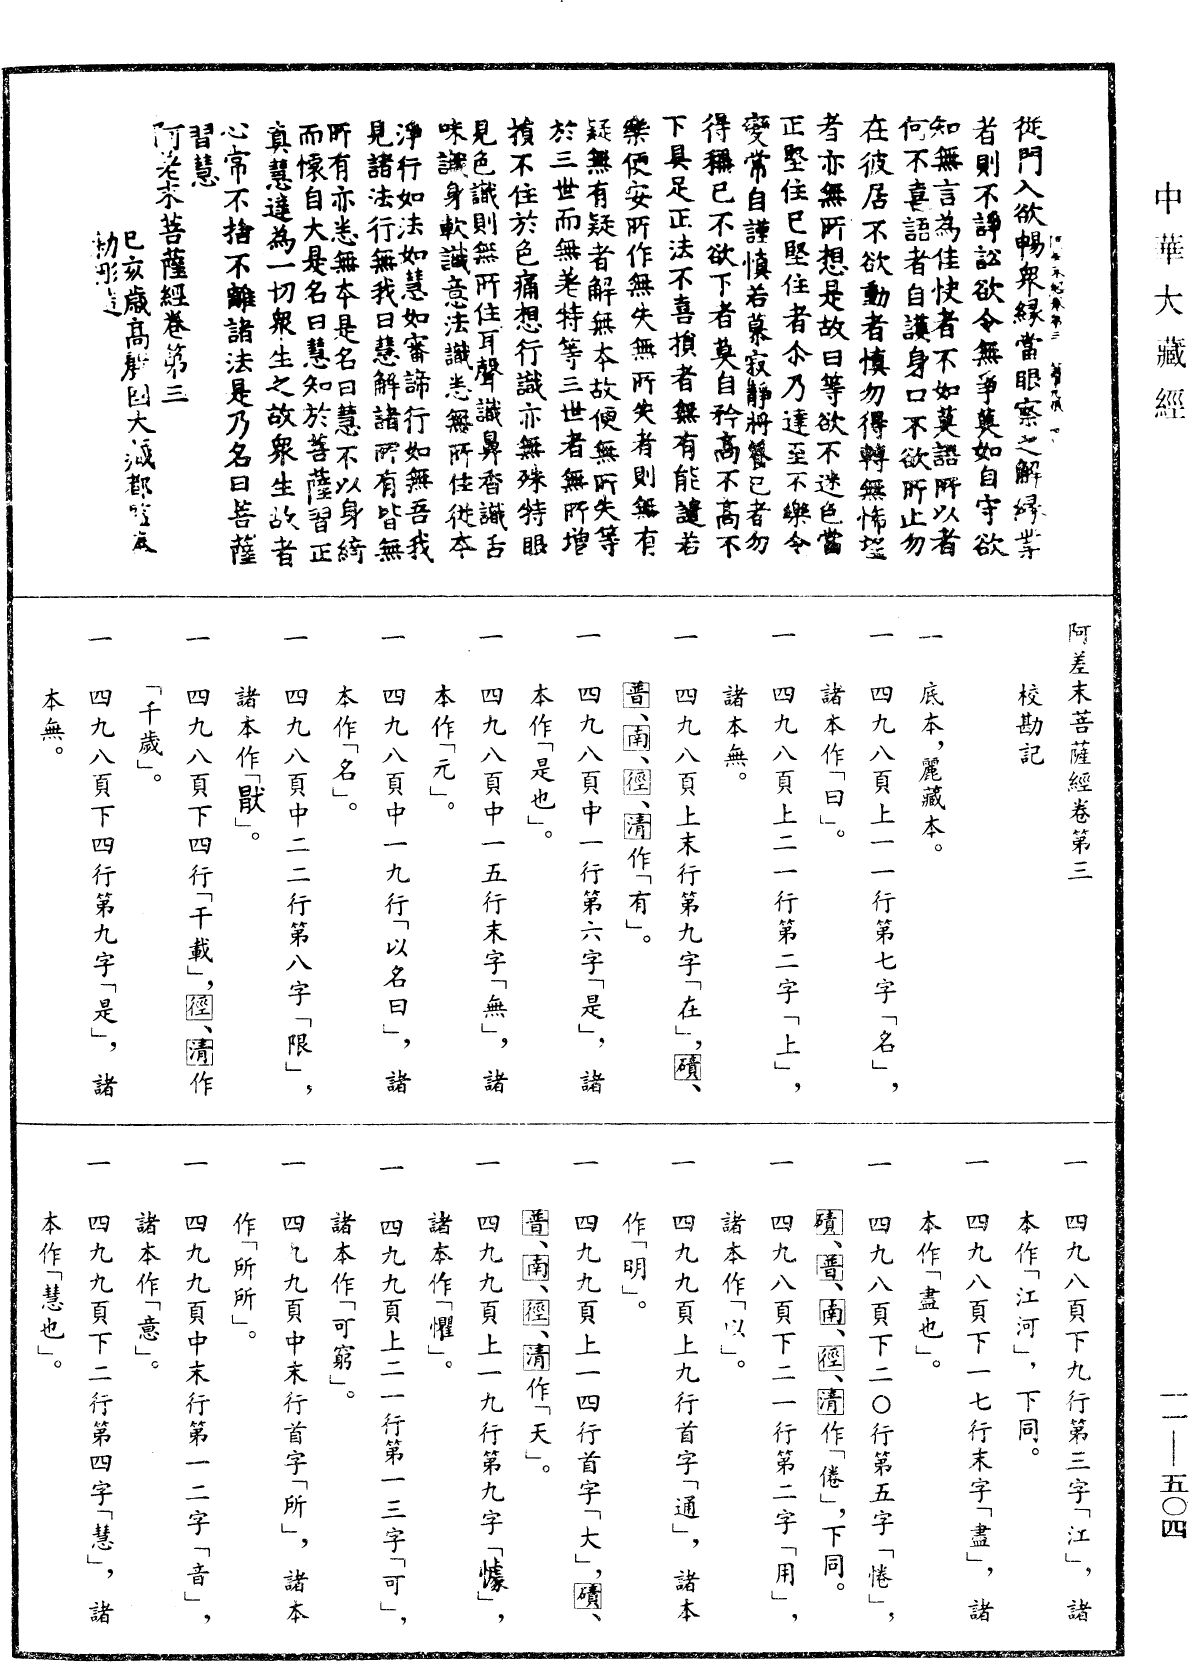 中華大藏經
從門入欲暢衆緣當眼察之解緣等
者則不諍訟欲令無爭莫如自守欲
知無言為佳快者不如莫語所以者
何不喜語者自護身口不欲所止勿
在彼居不欲動者慎勿得轉無怖望
者亦無所想是故曰等欲不迷色當
正堅住已堅住者尒乃達至不樂令
變常自謹慎若慕寂靜將養已者勿
得稱已不欲下者莫自矜高不高不
下具足正法不喜損者無有能譴若
樂便安所作無失無所失者則無有
疑無有疑者解無本故便無所失等
於三世而無著特等三世者無所增
損不住於色痛想行識亦無殊特眼
見色識則無所住耳聲識鼻香識舌
味識身軟識意法識悉無所住從本
淨行如法如慧如審諦行如無吾我
見諸法行無我曰慧解諸所有皆無
所有亦悉無本是名曰慧不以身綺
而懷自大是名曰慧知於菩薩習正
真慧達為一切衆生之故衆生故者
心常不捨不離諸法是乃名曰菩薩
習慧
阿差末菩薩經卷第三
己亥歲高麗國大藏都監奉
勅彫造
阿差末菩薩經卷第三
校勘記
一 底本，麗藏本。
一 四九八頁上一一行第七字「名」，
諸本作「曰」。
一 四九八頁上二一行第二字「上」，
諸本無。
一 四九八頁上末行第九字「在」，磧、
普、南、徑、清作「有」。
一 四九八頁中一行第六字「是」，諸
本作「是也」。
一 四九八頁中一五行末字「無」，諸
本作「元」。
一 四九八頁中一九行「以名曰」，諸
本作「名」。
一 四九八頁中二二行第八字「限」，
諸本作「猒」。
一 四九八頁下四行「千載」，徑、清作
「千歲」。
一 四九八頁下四行第九字「是」，諸
本無。
一 四九八頁下九行第三字「江」，諸
本作「江河」，下同。
一 四九八頁下一七行末字「盡」，諸
本作「盡也」。
一 四九八頁下二〇行第五字「惓」，
磧、普、南、徑、清作「倦」，下同。
一 四九八頁下二一行第二字「用」，
諸本作「以」。
一 四九九頁上九行首字「通」，諸本
作「明」。
一 四九九頁上一四行首字「大」，磧、
普、南、徑、清作「天」。
一 四九九頁上一九行第九字「懅」，
諸本作「懼」。
一 四九九頁上二一行第一三字「可」，
諸本作「可窮」。
一 四九九頁中末行首字「所」，諸本
作「所所」。
一 四九九頁中末行第一二字「音」，
諸本作「意」。
一 四九九頁下二行第四字「慧」，諸
本作「慧也」。
一一—五〇四